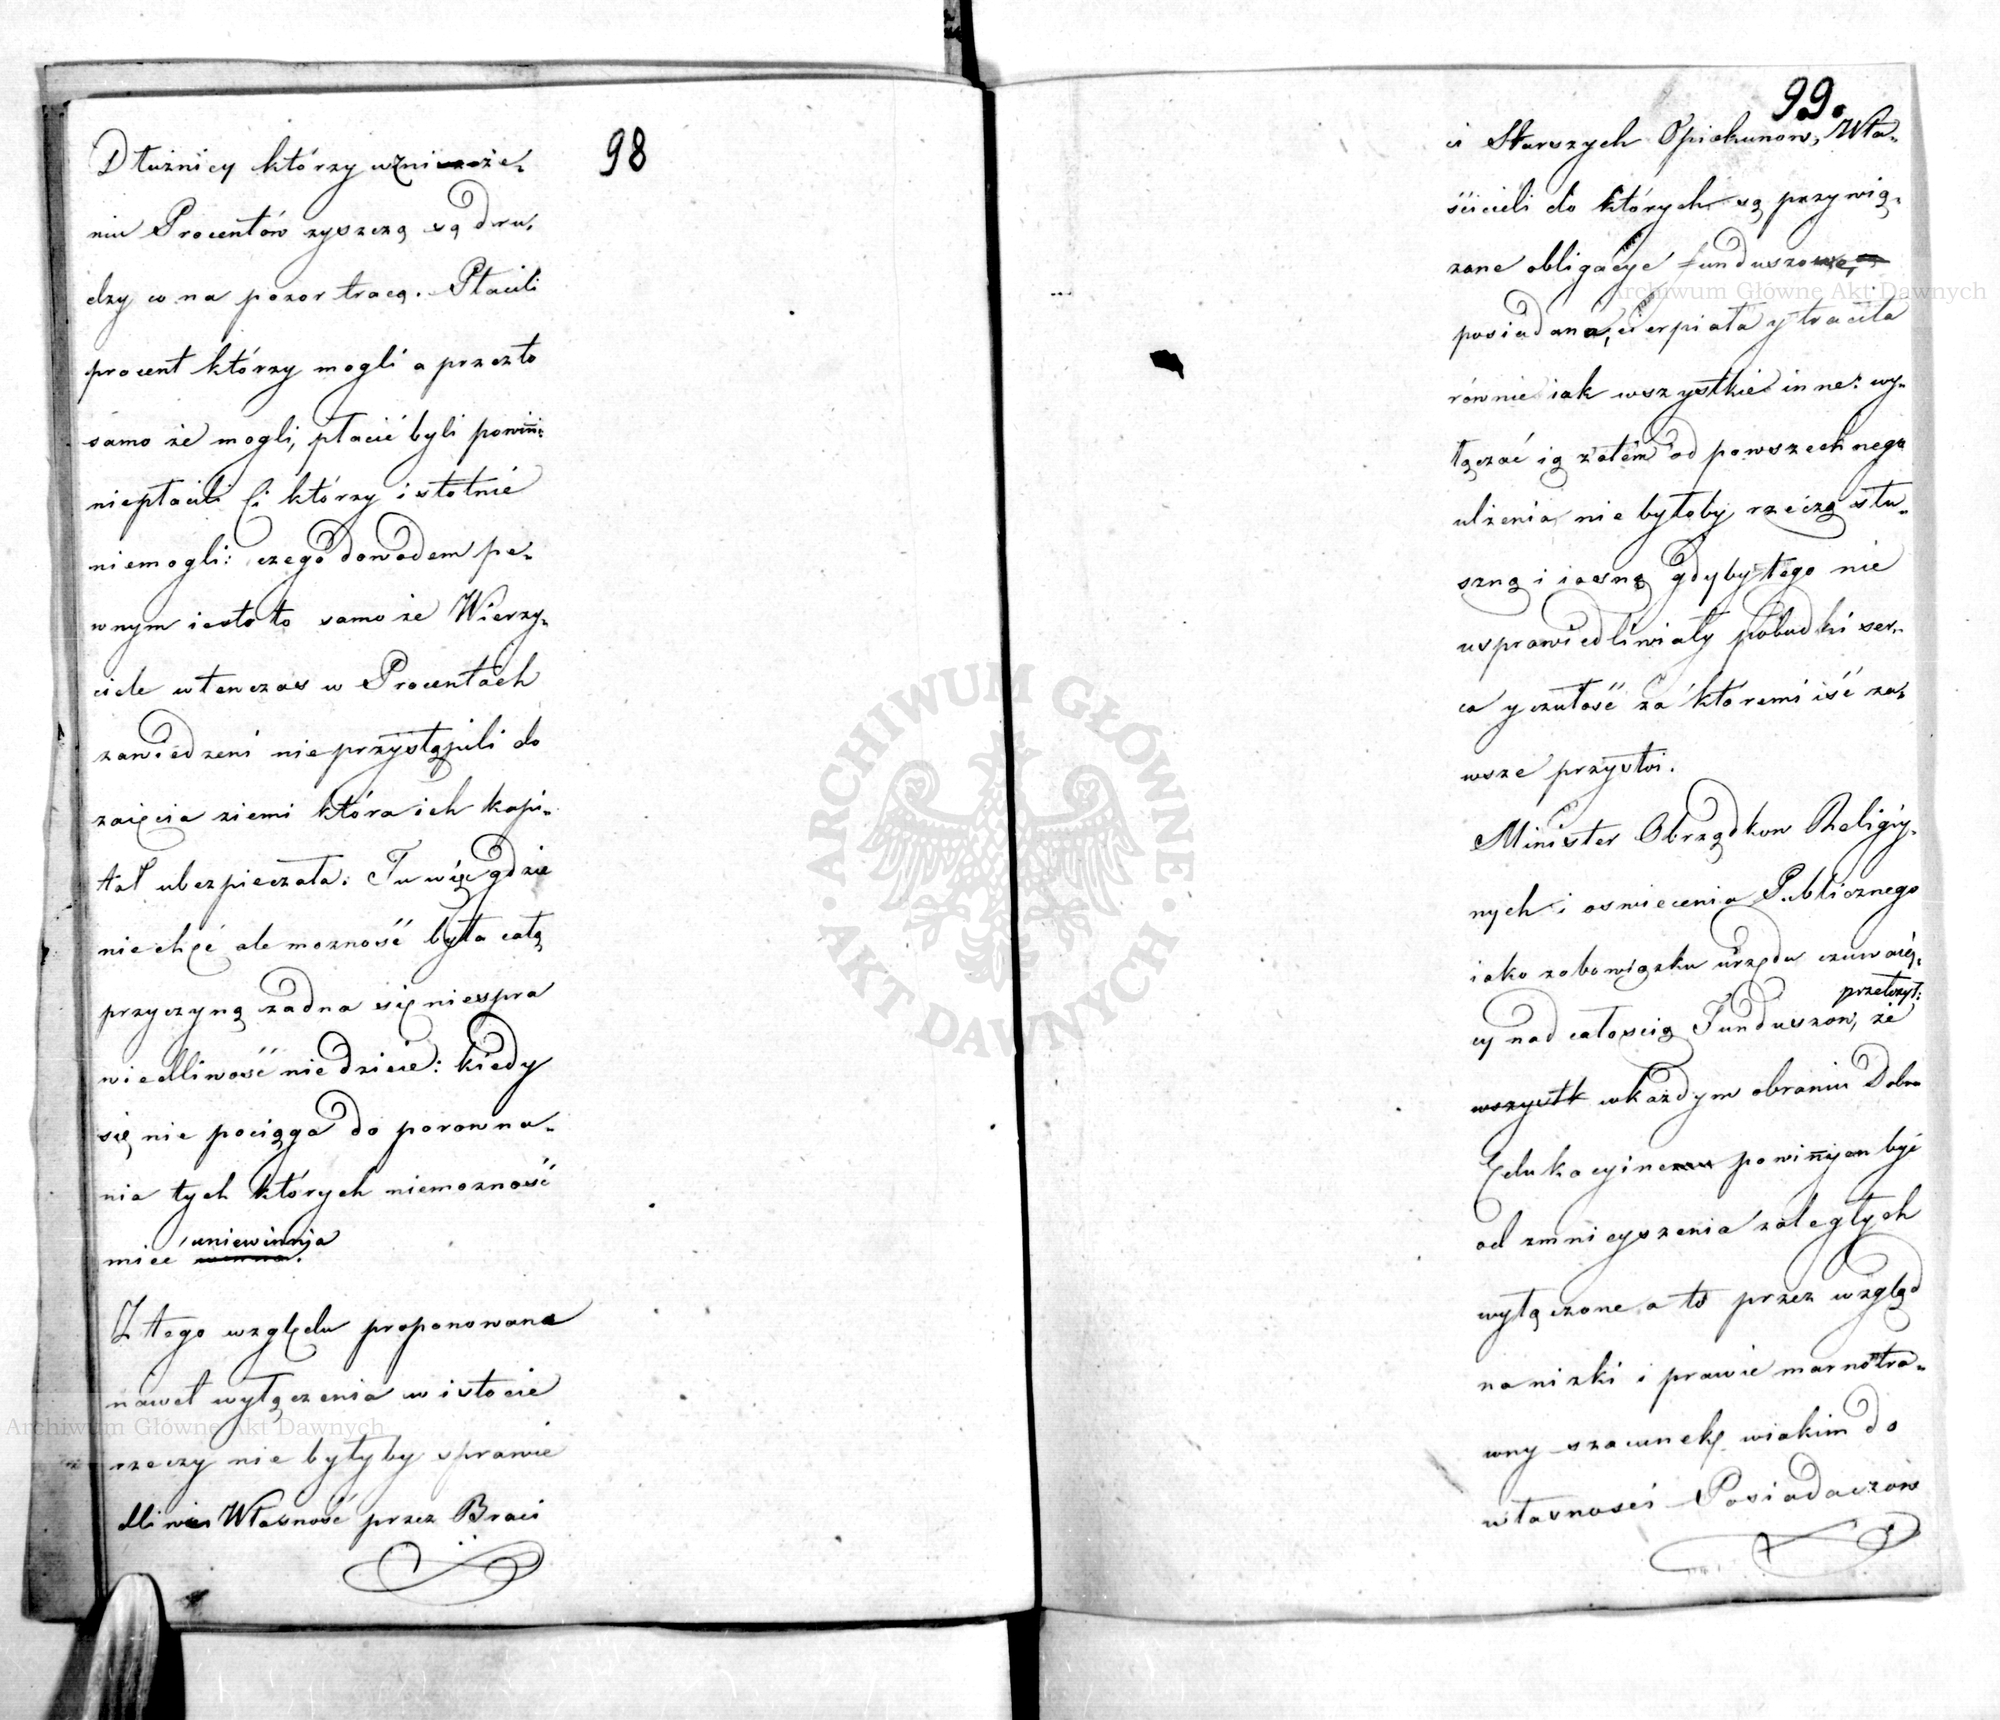 98
Dłużnicy którzy wzniże-
niu Procentów zyszczą są dru-
dzy co na pozor tracą. Płacili
procent którzy mogli a przezto
samo że mogli, płacić byli powinni:
niepłacili Ci którzy istotnie
niemogli: czego dowodem pe-
wnym iest to samo że Wierzy-
ciele wtenczas w Procentach
zawiedzeni nieprzystąpili do
zaięcia ziemi która ich kapi-
tał ubezpieczała. Tu więc gdzie
niechęć ale możność była całą
przyczyną żadna się niespra
wiedliwość niedzieie: kiedy
się nie pociąga do porowna-
nia tych których niemożność
uniewinnia
mieć winna.
Z tego względu proponowane
nawet wyłączenia w istocie
rzeczy nie byłyby sprawie
dliwe Własność przez Braci
99.
i Starszych Opiekunow, Wła-
ścicieli do których są przywią-
zane obligacye funduszowe,
posiadana, cierpiała y traciła
równie iak wszystkie inne: wy-
łączać ią zatém od powszechnego
ulżenia nie byłoby rzeczą słu-
szną i iasną gdyby tego nie
usprawiedliwiały pobudki ser-
ca y czułość za któremi iść za-
wsze przystoi.
Minister Obrządkow Religiy-
nych i oswiecenia Publicznego
iako zobowiązku urzędu czuwaią-
przełożył:
cy nad całoscią Funduszow, że
wszystk wkażdym obraniu Dobra
Edukacyine powinyen być
od zmnieyszenia zaległych
wyłączone a to przez wzgląd
na nizki i prawie marnotra-
wny szacunek, wiakim do
własnosci Posiadaczow
ARCHIWUM GŁÓWNE AKT DAWNYCH
Archiwum Główne Akt Dawnych
Archiwum Główne Akt Dawnych